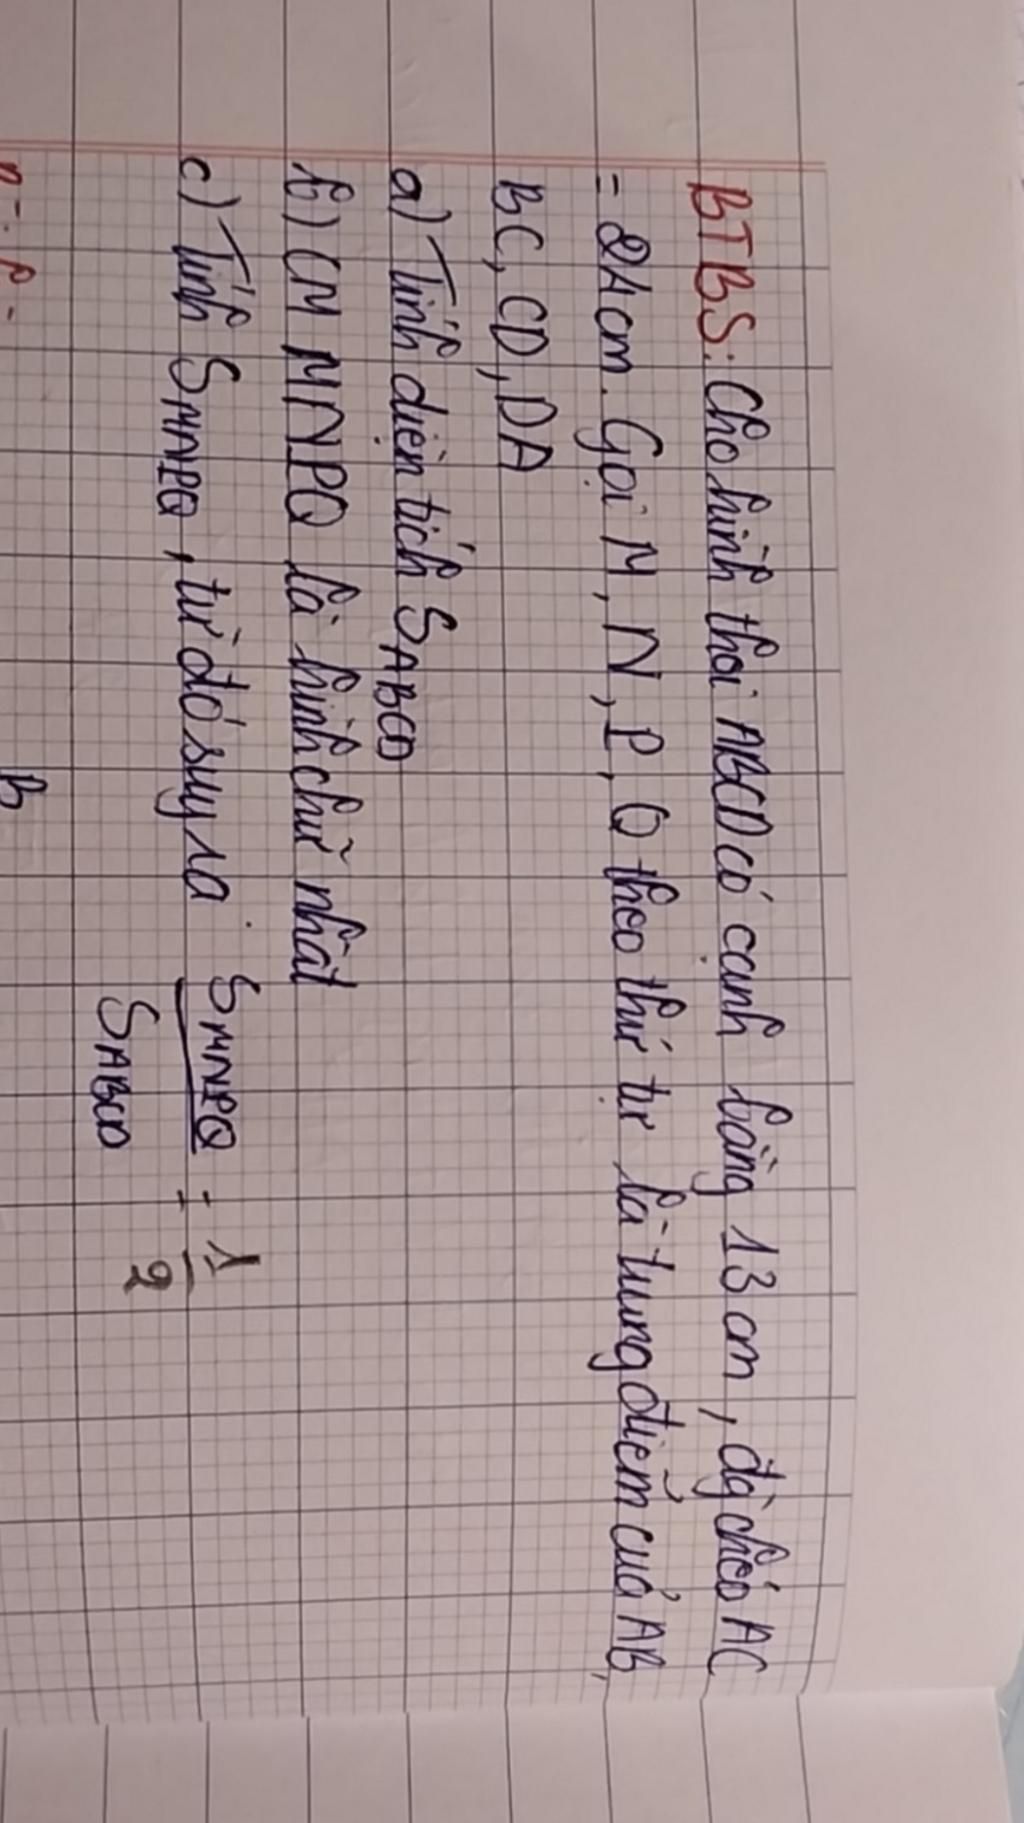 BTBS: Cho hình thoi ABCD có cạnh bằng 13 cm, đg chéo AC
= 24cm. Gọi M, N, P, Q theo thứ tự là trung điểm của AB,
BC, CD, DA
a) Tính diện tích S_ABCD
b) CM MNPQ là hình chữ nhật
c) Tính S_MNPQ, từ đó suy ra S_MNPQ / S_ABCD = 1/2
B